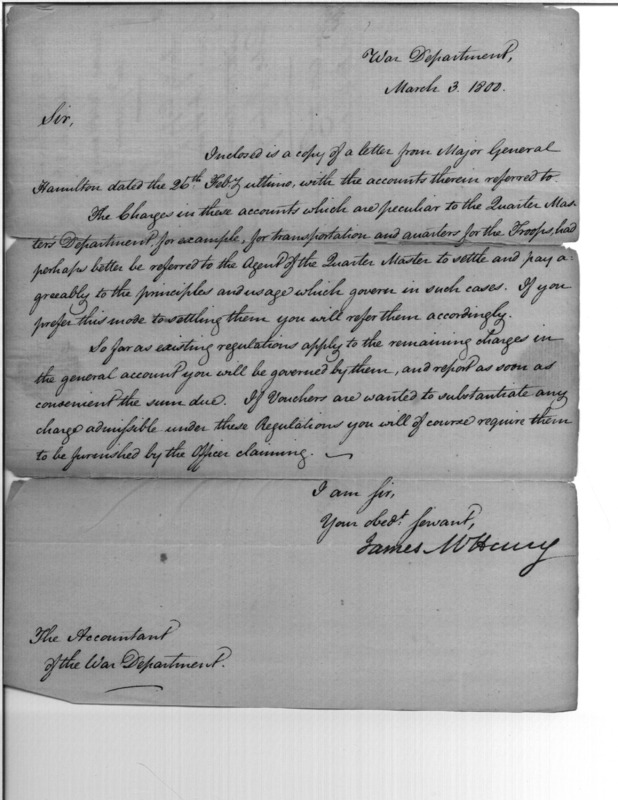 War Department,
March 3. 1800.
Sir,
Inclosed is a copy of a letter from Major General
Hamilton dated the 26th Feby ultimo, with the accounts therein referred to.
The Charges in these accounts which are peculiar to the Quarter Mas-
ters Department, for example, for transportation and quarters for the Troops, had
perhaps better be referred to the Agent of the Quarter Master to settle and pay a-
greeably to the principles and usage which govern in such cases. If you
prefer this mode to settling them you will refer them accordingly.
So far as existing regulations apply to the remaining charges in
the general account you will be governed by them, and report as soon as
convenient the sum due. If Vouchers are wanted to substantiate any
charge admissible under these Regulations you will of course require them
to be furnished by the Officer claiming.
I am Sir,
Your obedt. Servant,
James McHenry
The Accountant
of the War Department.